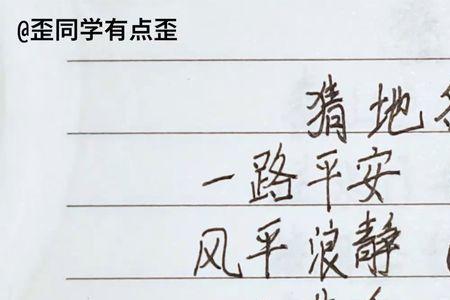 @歪同学有点歪
猜地
一路平安
风平浪静